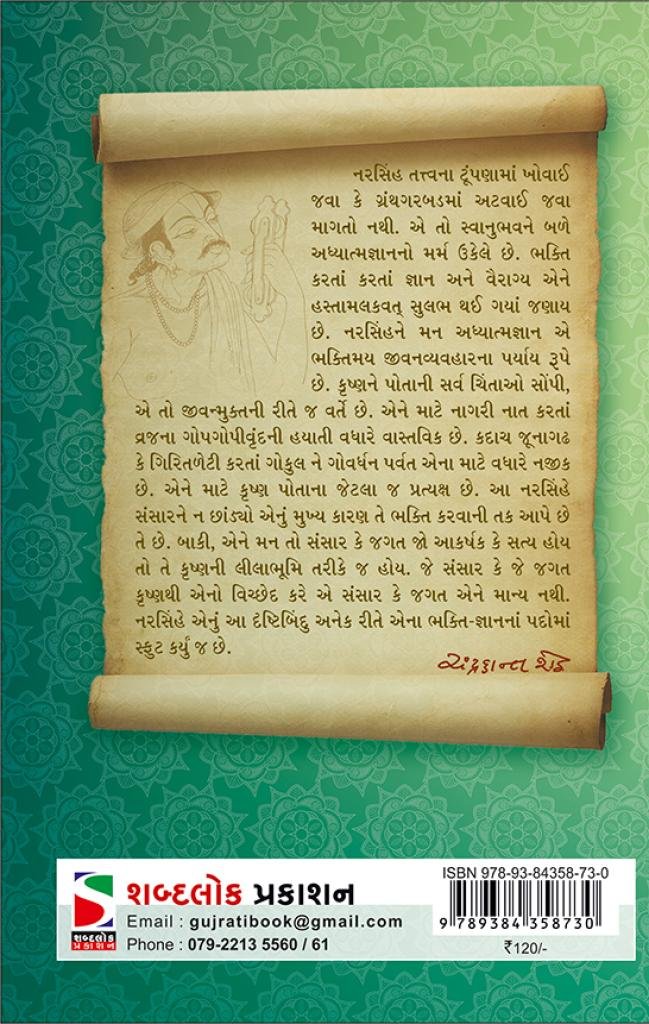 નરસિંહ તત્ત્વના ટૂંપણામાં ખોવાઈ
જવા કે ગ્રંથગરબડમાં અટવાઈ જવા
માગતો નથી. એ તો સ્વાનુભવને બળે
અધ્યાત્મજ્ઞાનનો મર્મ ઉકેલે છે. ભક્તિ
કરતાં કરતાં જ્ઞાન અને વૈરાગ્ય એને
હસ્તામલકવત્ સુલભ થઈ ગયાં જણાય
છે. નરસિંહને મન અધ્યાત્મજ્ઞાન એ
ભક્તિમય જીવનવ્યવહારના પર્યાય રૂપે
છે. કૃષ્ણને પોતાની સર્વ ચિંતાઓ સોંપી,
એ તો જીવન્મુક્તની રીતે જ વર્તે છે. એને માટે નાગરી નાત કરતાં
વ્રજના ગોપગોપીવૃંદની હયાતી વધારે વાસ્તવિક છે. કદાચ જૂનાગઢ
કે ગિરિતળેટી કરતાં ગોકુલ ને ગોવર્ધન પર્વત એના માટે વધારે નજીક
છે. એને માટે કૃષ્ણ પોતાના જેટલા જ પ્રત્યક્ષ છે. આ નરસિંહે
સંસારને ન છાંડ્યો એનું મુખ્ય કારણ તે ભક્તિ કરવાની તક આપે છે
તે છે. બાકી, એને મન તો સંસાર કે જગત જો આકર્ષક કે સત્ય હોય
તો તે કૃષ્ણની લીલાભૂમિ તરીકે જ હોય. જે સંસાર કે જે જગત
કૃષ્ણથી એનો વિચ્છેદ કરે એ સંસાર કે જગત એને માન્ય નથી.
નરસિંહે એનું આ દૃષ્ટિબિંદુ અનેક રીતે એના ભક્તિ-જ્ઞાનનાં પદોમાં
સ્ફુટ કર્યું જ છે.
ચંદ્રકાન્ત શેઠ
શબ્દલોક પ્રકાશન
Email : gujratibook@gmail.com
Phone : 079-2213 5560 / 61
શબ્દલોક
પ્રકાશન
ISBN 978-93-84358-73-0
9 789384 358730
₹120/-